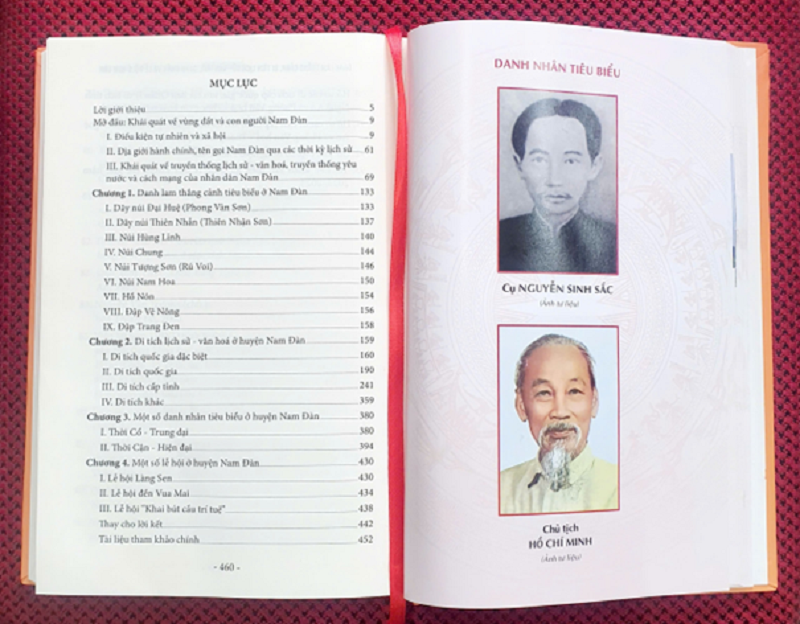 MỤC LỤC
Lời giới thiệu 5
Mở đầu: Khái quát về vùng đất và con người Nam Đàn 9
I. Điều kiện tự nhiên và xã hội 9
II. Địa giới hành chính, tên gọi Nam Đàn qua các thời kỳ lịch sử 61
III. Khái quát về truyền thống lịch sử - văn hoá, truyền thống yêu
nước và cách mạng của nhân dân Nam Đàn 69
Chương 1. Danh lam thắng cảnh tiêu biểu ở Nam Đàn 133
I. Dãy núi Đại Huệ (Phong Vân Sơn) 133
II. Dãy núi Thiên Nhẫn (Thiên Nhận Sơn) 137
III. Núi Hùng Lĩnh 140
IV. Núi Chung 144
V. Núi Tượng Sơn (Rú Voi) 146
VI. Núi Nam Hoa 150
VII. Hồ Nón 154
VIII. Đập Vệ Nông 156
IX. Đập Trang Đen 158
Chương 2. Di tích lịch sử - văn hoá ở huyện Nam Đàn 159
I. Di tích quốc gia đặc biệt 160
II. Di tích quốc gia 190
III. Di tích cấp tỉnh 241
IV. Di tích khác 359
Chương 3. Một số danh nhân tiêu biểu ở huyện Nam Đàn 380
I. Thời Cổ - Trung đại 380
II. Thời Cận - Hiện đại 394
Chương 4. Một số lễ hội ở huyện Nam Đàn 430
I. Lễ hội Làng Sen 430
II. Lễ hội đền Vua Mai 434
III. Lễ hội "Khai bút cầu trí tuệ" 438
Thay cho lời kết 442
Tài liệu tham khảo chính 452
- 460 -
DANH NHÂN TIÊU BIỂU
Cụ NGUYỄN SINH SẮC
(Ảnh tư liệu)
Chủ tịch
HỒ CHÍ MINH
(Ảnh tư liệu)